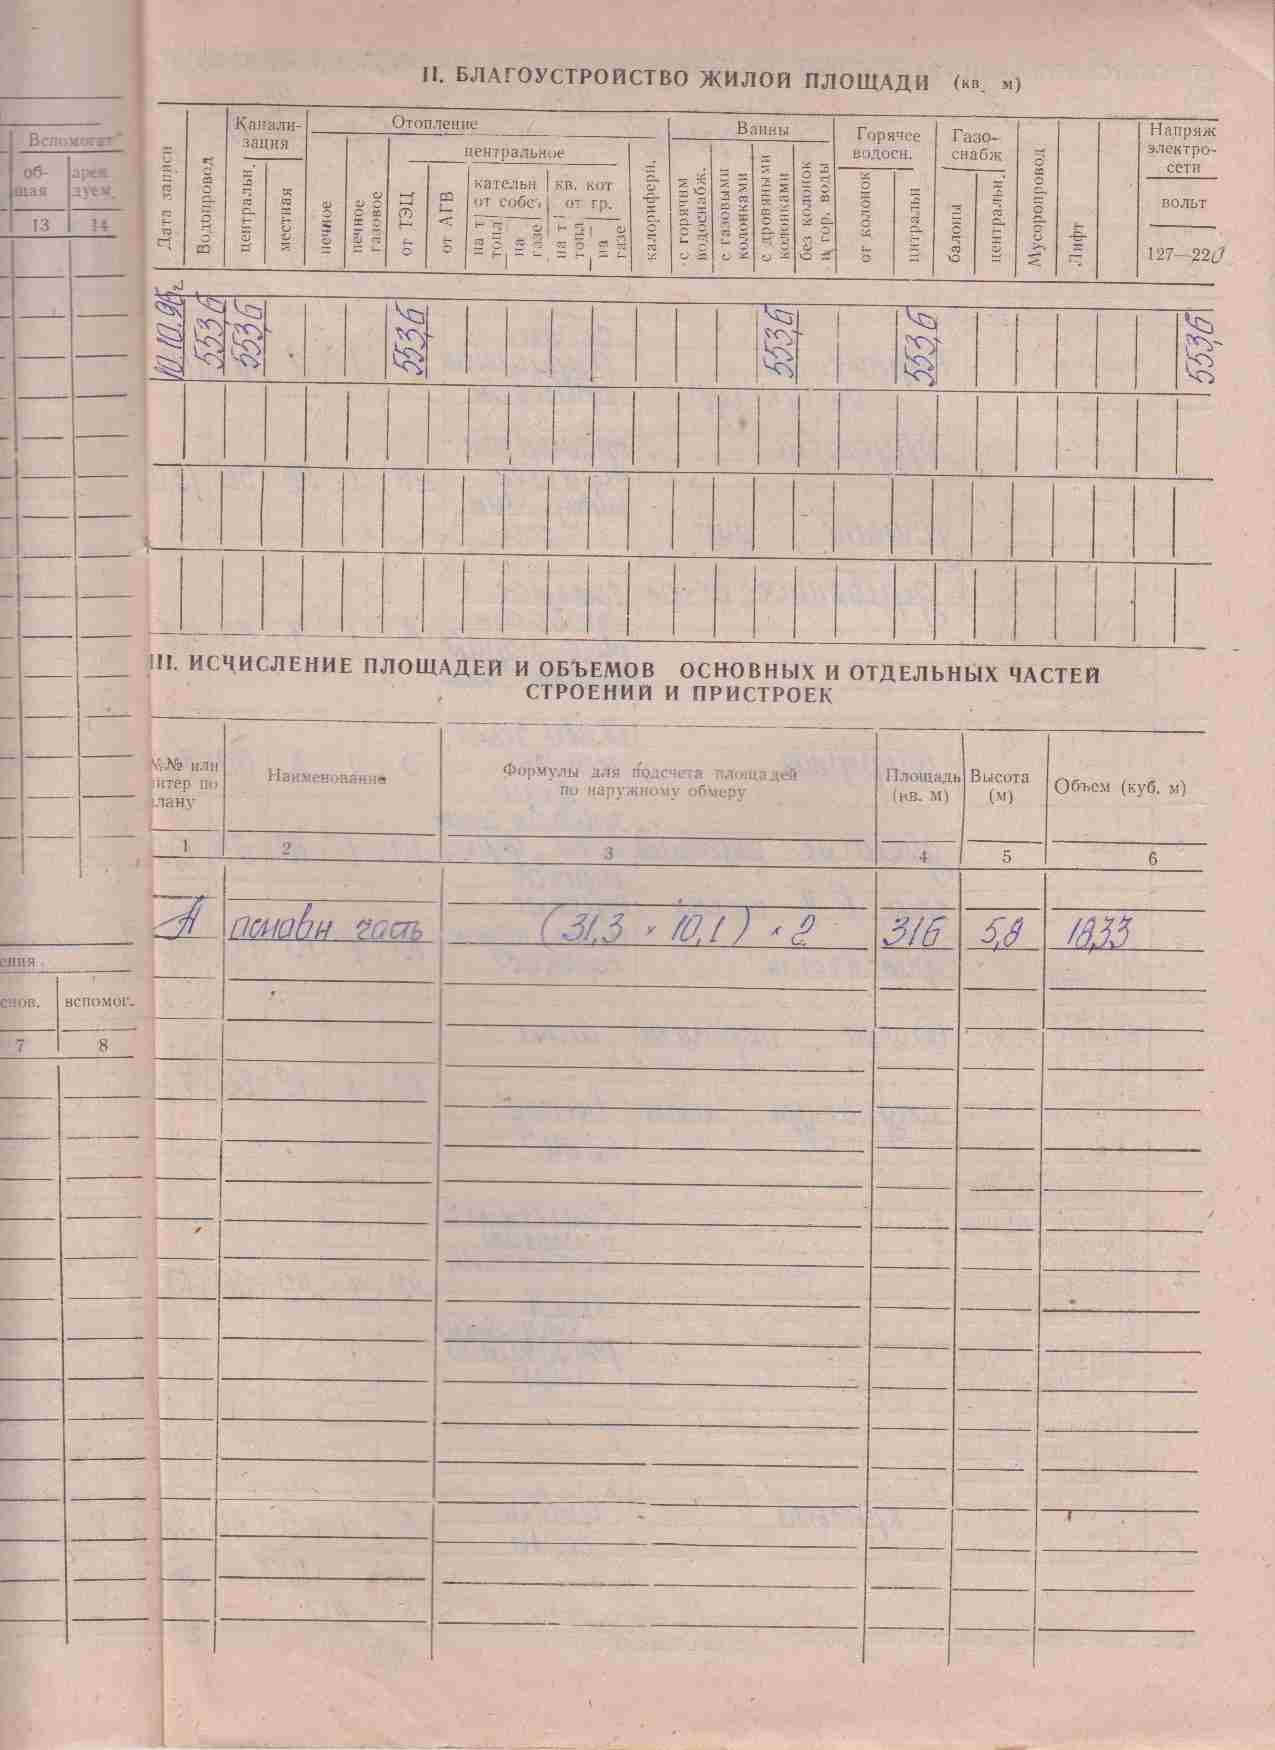 Вспомогат.
об-
щая
арен
дуем.
13
14
ения
снов.
вспомог.
7
8
II. БЛАГОУСТРОЙСТВО ЖИЛОЙ ПЛОЩАДИ (кв. м)
Дата записи
Водопровод
Канали-
зация
центральн.
местная
Отопление
печное
печное
газовое
центральное
от ТЭЦ
от АГВ
кательн
от собс.
на т
топл
на
газе
кв. кот
от гр.
на т
топл
на
газе
калориферн.
Ванны
с горячим
водоснабж.
с газовыми
колонками
с дровяными
колонками
без колонок
и гор. воды
Горячее
водосн.
от колонок
цнтральн
Газо-
снабж
баллоны
центральн.
Мусоропровод
Лифт
Напряж
электро-
сети
вольт
127—220
10.10.96г.
553,6
553,6
553,6
553,6
553,6
553,6
III. ИСЧИСЛЕНИЕ ПЛОЩАДЕЙ И ОБЪЕМОВ ОСНОВНЫХ И ОТДЕЛЬНЫХ ЧАСТЕЙ
СТРОЕНИЙ И ПРИСТРОЕК
№№ или
литер по
плану
Наименование
Формулы для подсчета площадей
по наружному обмеру
Площадь
(кв. м)
Высота
(м)
Объем (куб. м)
1
2
3
4
5
6
А
основн часть
(31,3 × 10,1) × 2
316
5,8
1833